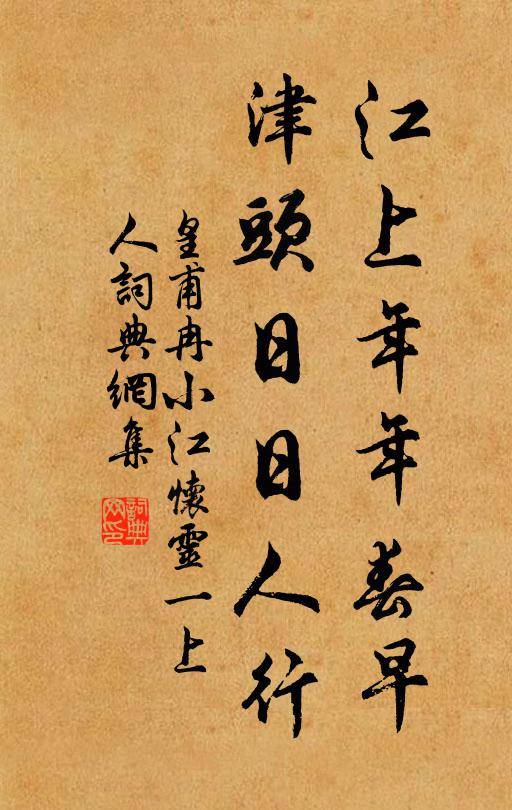 江上年年春早
津頭日日人行
皇甫冉小江懷靈一上
人詞典網集
詞典网印